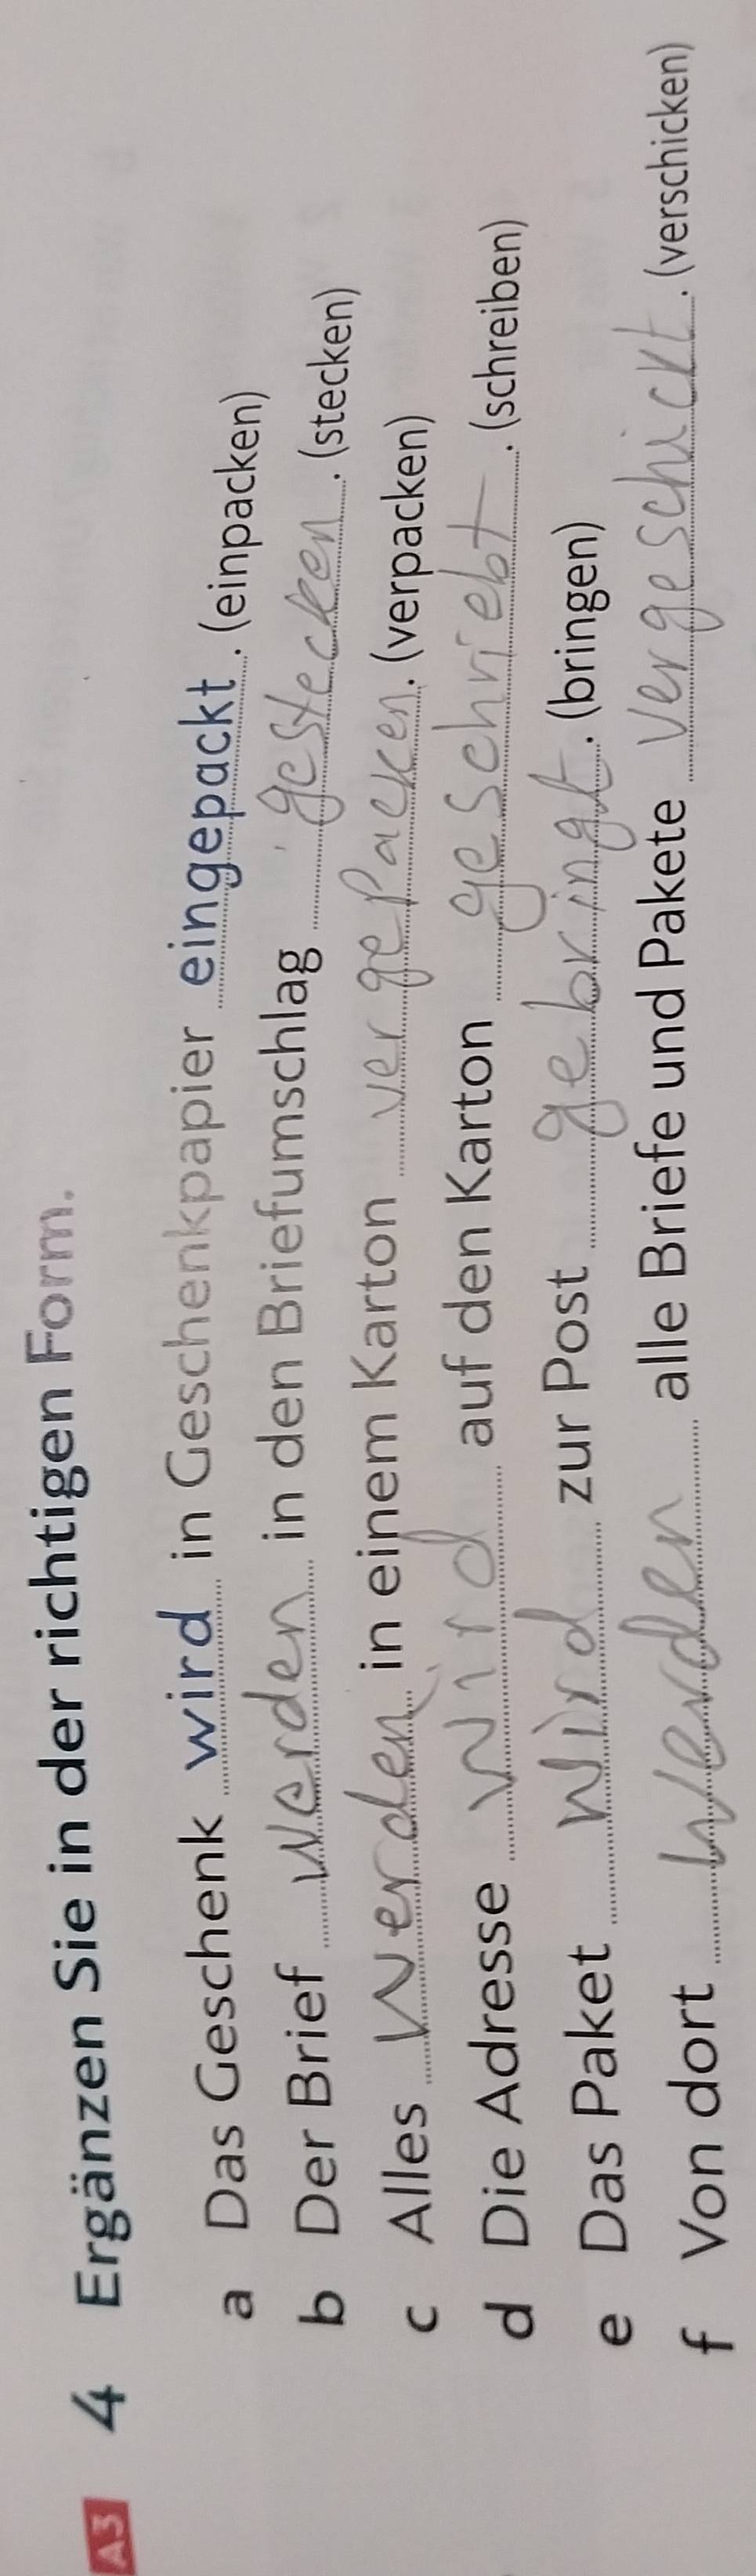 A3 4 Ergänzen Sie in der richtigen Form.
a Das Geschenk wird in Geschenkpapier eingepackt. (einpacken)
b Der Brief werden in den Briefumschlag gestecken. (stecken)
c Alles werden in einem Karton vergepacken. (verpacken)
d Die Adresse wird auf den Karton geschriebt. (schreiben)
e Das Paket wird zur Post gebringt. (bringen)
f Von dort werden alle Briefe und Pakete vergeschickt. (verschicken)